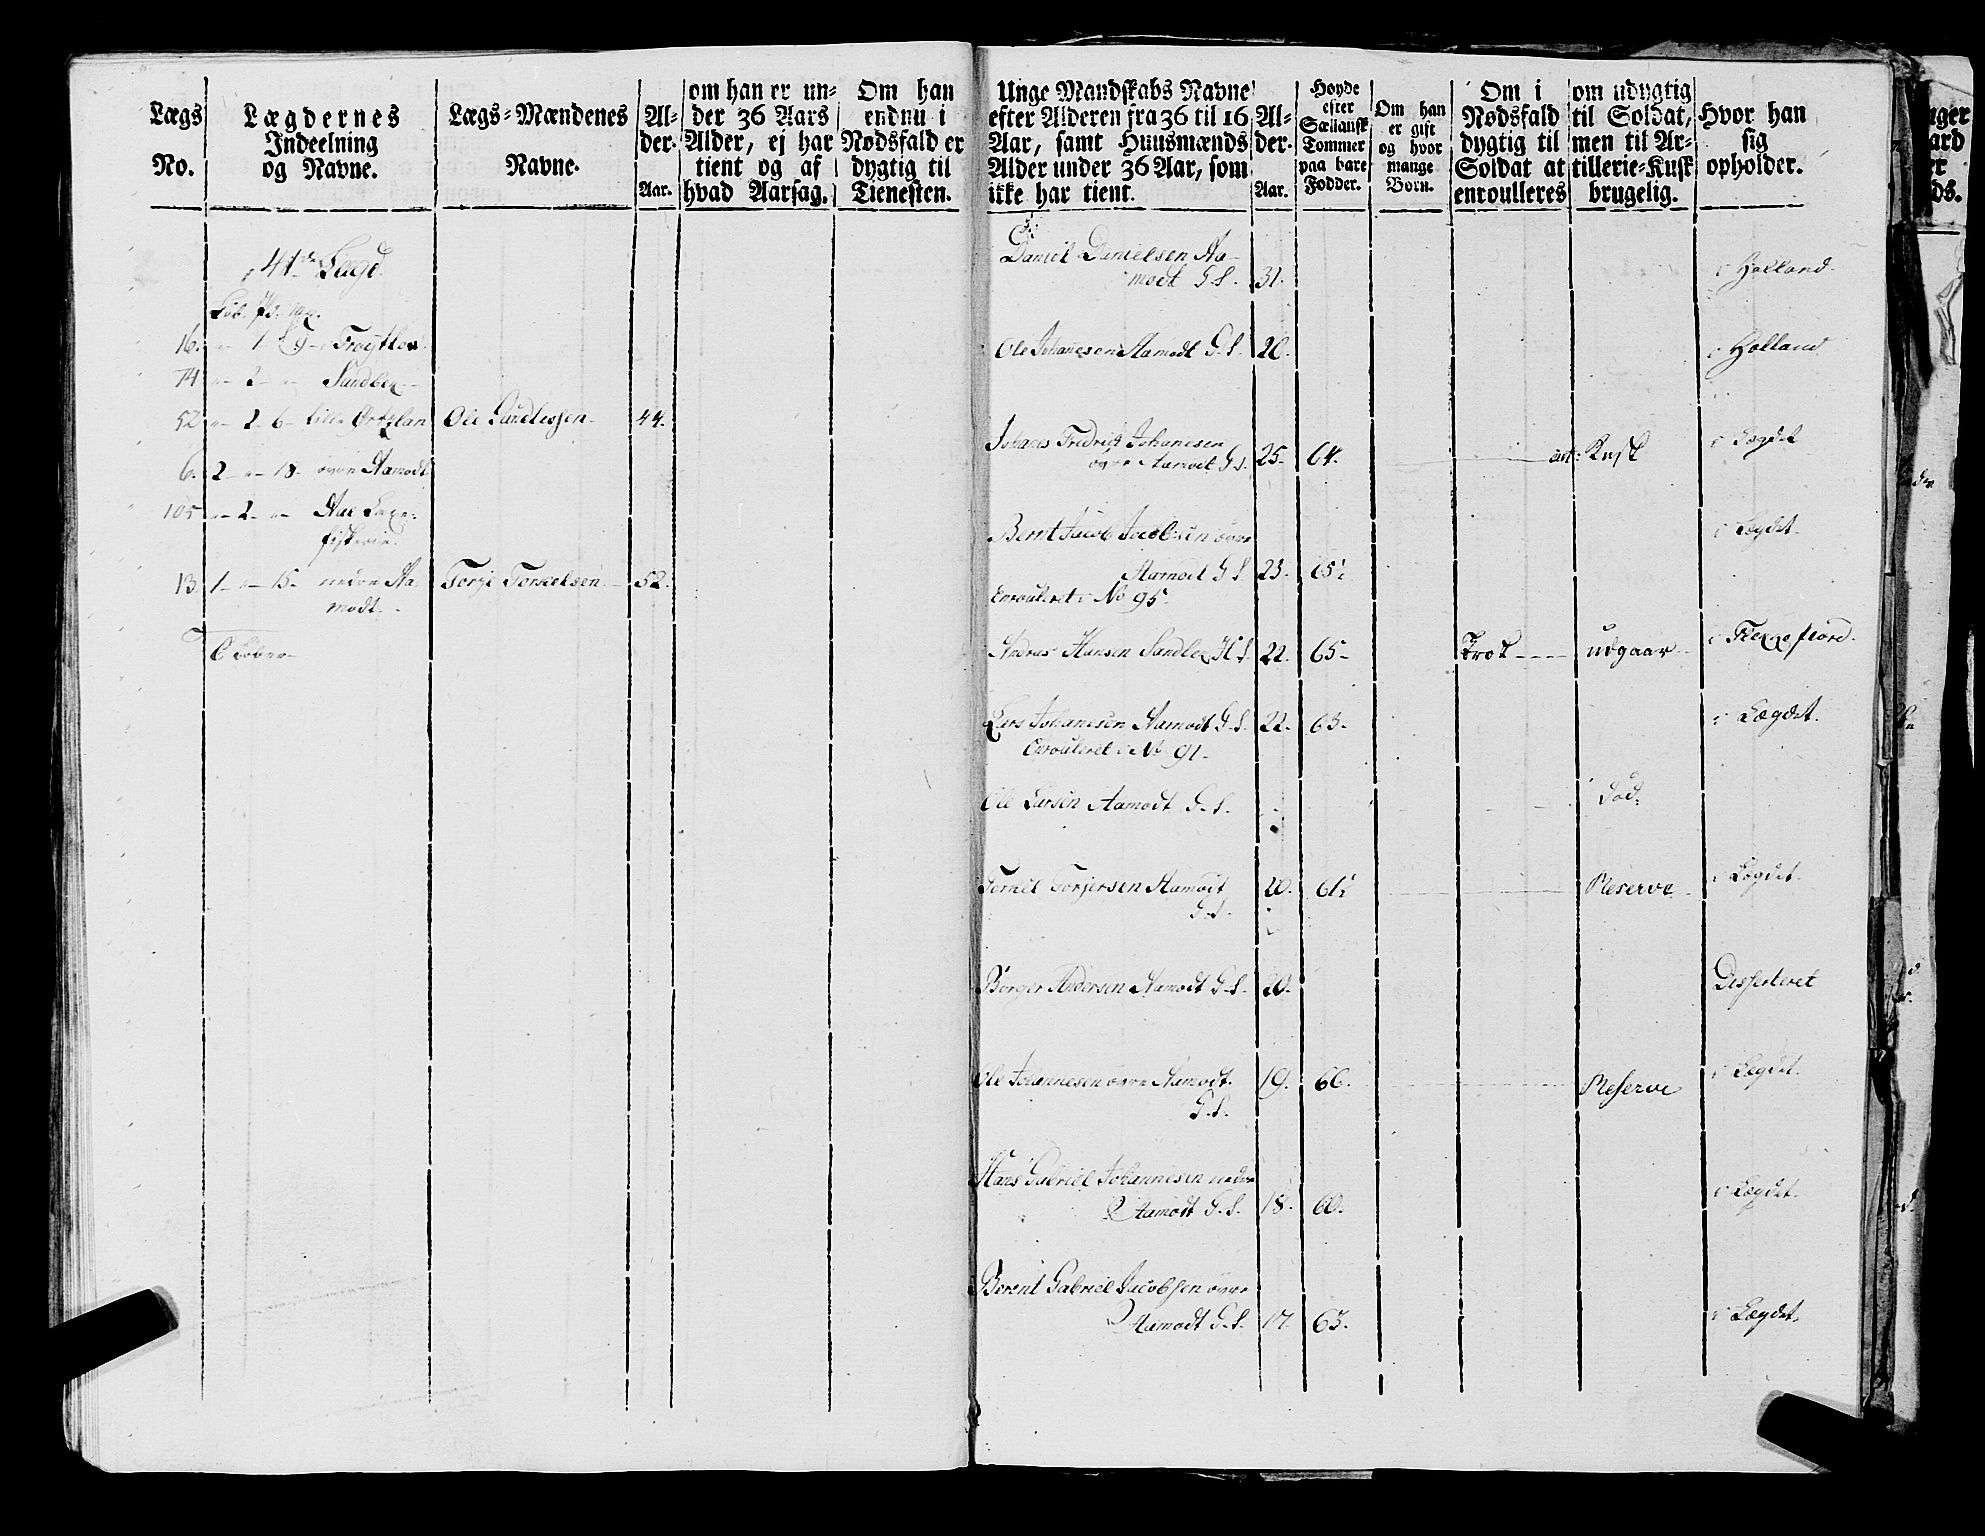 Lægs No.
Lægdernes Indeelning og Navne.
Lægs-Mændenes Navne.
Alder. Aar.
om han er under 36 Aars Alder, ej har tient og af hvad Aarsag.
Om han endnu i Nødsfald er dygtig til Tienesten.
Unge Mandskabs Navne efter Alderen fra 36 til 16 Aar, samt Huusmænds Alder under 36 Aar, som ikke har tient.
Alder. Aar.
Høyde efter Sællansk Tommer paa bare Fødder.
Om han er gift og hvor mange Børn.
Om i Nødsfald dygtig til Soldat at enroulleres
om udygtig til Soldat, men til Artillerie-Kusk brugelig.
Hvor han sig opholder.
41de Lægd
16. 1
74 2 Sandber
52 2 6 Lille Ole 44.
6. 2 18. øvre Aamodt
105 2 Aae Laxe-
fiskerie
13. 1 15. nedre Aa- Torje Torkelsen 52.
modt.
Daniel Danielsen Aa-
modt G. S. 31. i Holland.
Ole Johannesen Aamodt G. S. 26. i Holland
Johanes Fredrich Johanesen
øvre Aamodt G S. 25. 64. art: Kusk i Lægdet
Bernt Jacob Jacobsen øvre i Lægdet.
Aamodt G S. 23. 65½
Enrouleret i No 95.
Andreas Hansen H S. 22. 65 udgaar i Flekkefiord.
Lars Johanesen Aamodt G. S. 22. 63. i Lægdet.
Enrouleret i No 91.
Ole Larsen Aamodt G. S. Død.
Torkel Torjersen Aamodt 20. 61½ Reserve i Lægdet.
G. S.
Børger Andersen Aamodt G. S. 20. Desserteret
Ole Johannesen øvre Aamodt. 19. 66. Reserve i Lægdet.
G. S.
Hans Gabriel Johannesen nedre
Aamodt G. S. 18. 60. i Lægdet.
Berent Gabriel Jacobsen øvre
Aamodt G. S. 17. 63. i Lægdet.